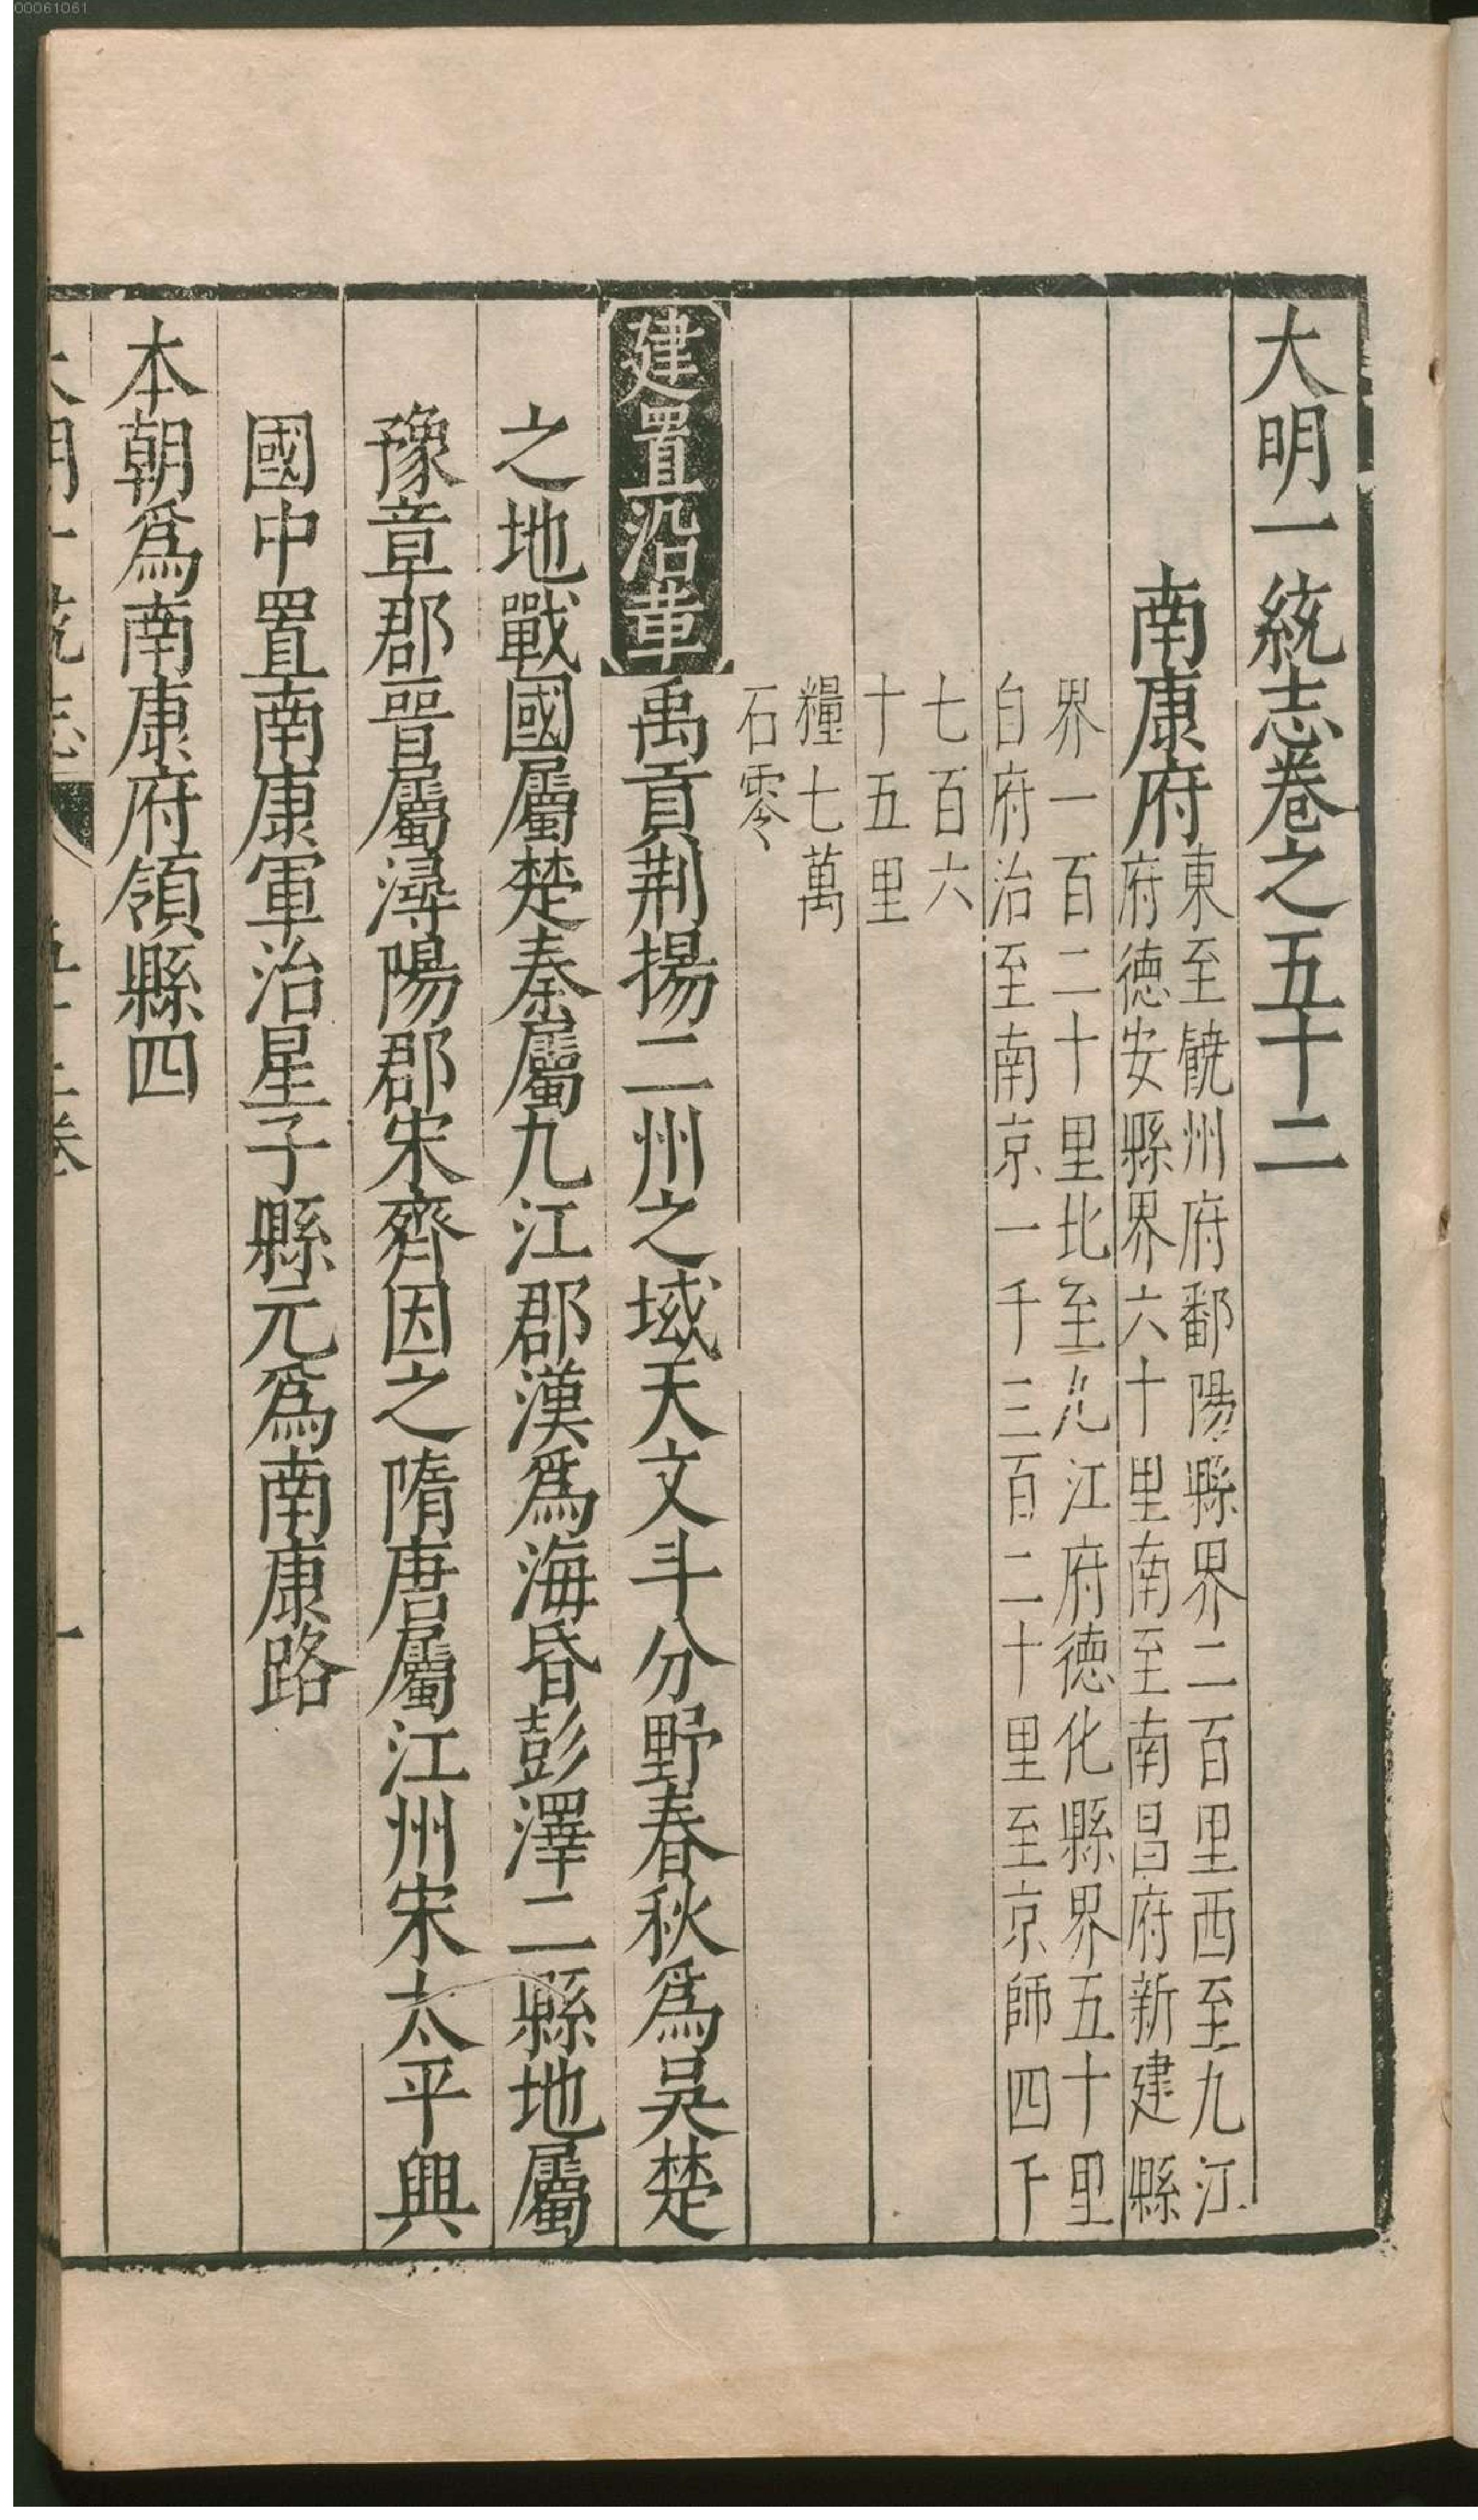 00061061
大明一統志卷之五十二
南康府
東至饒州府鄱陽縣界二百里西至九江
府德安縣界六十里南至南昌府新建縣
界一百二十里北至九江府德化縣界五十里
自府治至南京一千三百二十里至京師四千
七百六
十五里
糧七萬
石零
建置沿革禹貢荆揚二州之域天文斗分野春秋爲吳楚
之地戰國屬楚秦屬九江郡漢爲海昏彭澤二縣地屬
豫章郡晉屬潯陽郡宋齊因之隋唐屬江州宋太平興
國中置南康軍治星子縣元爲南康路
本朝爲南康府領縣四